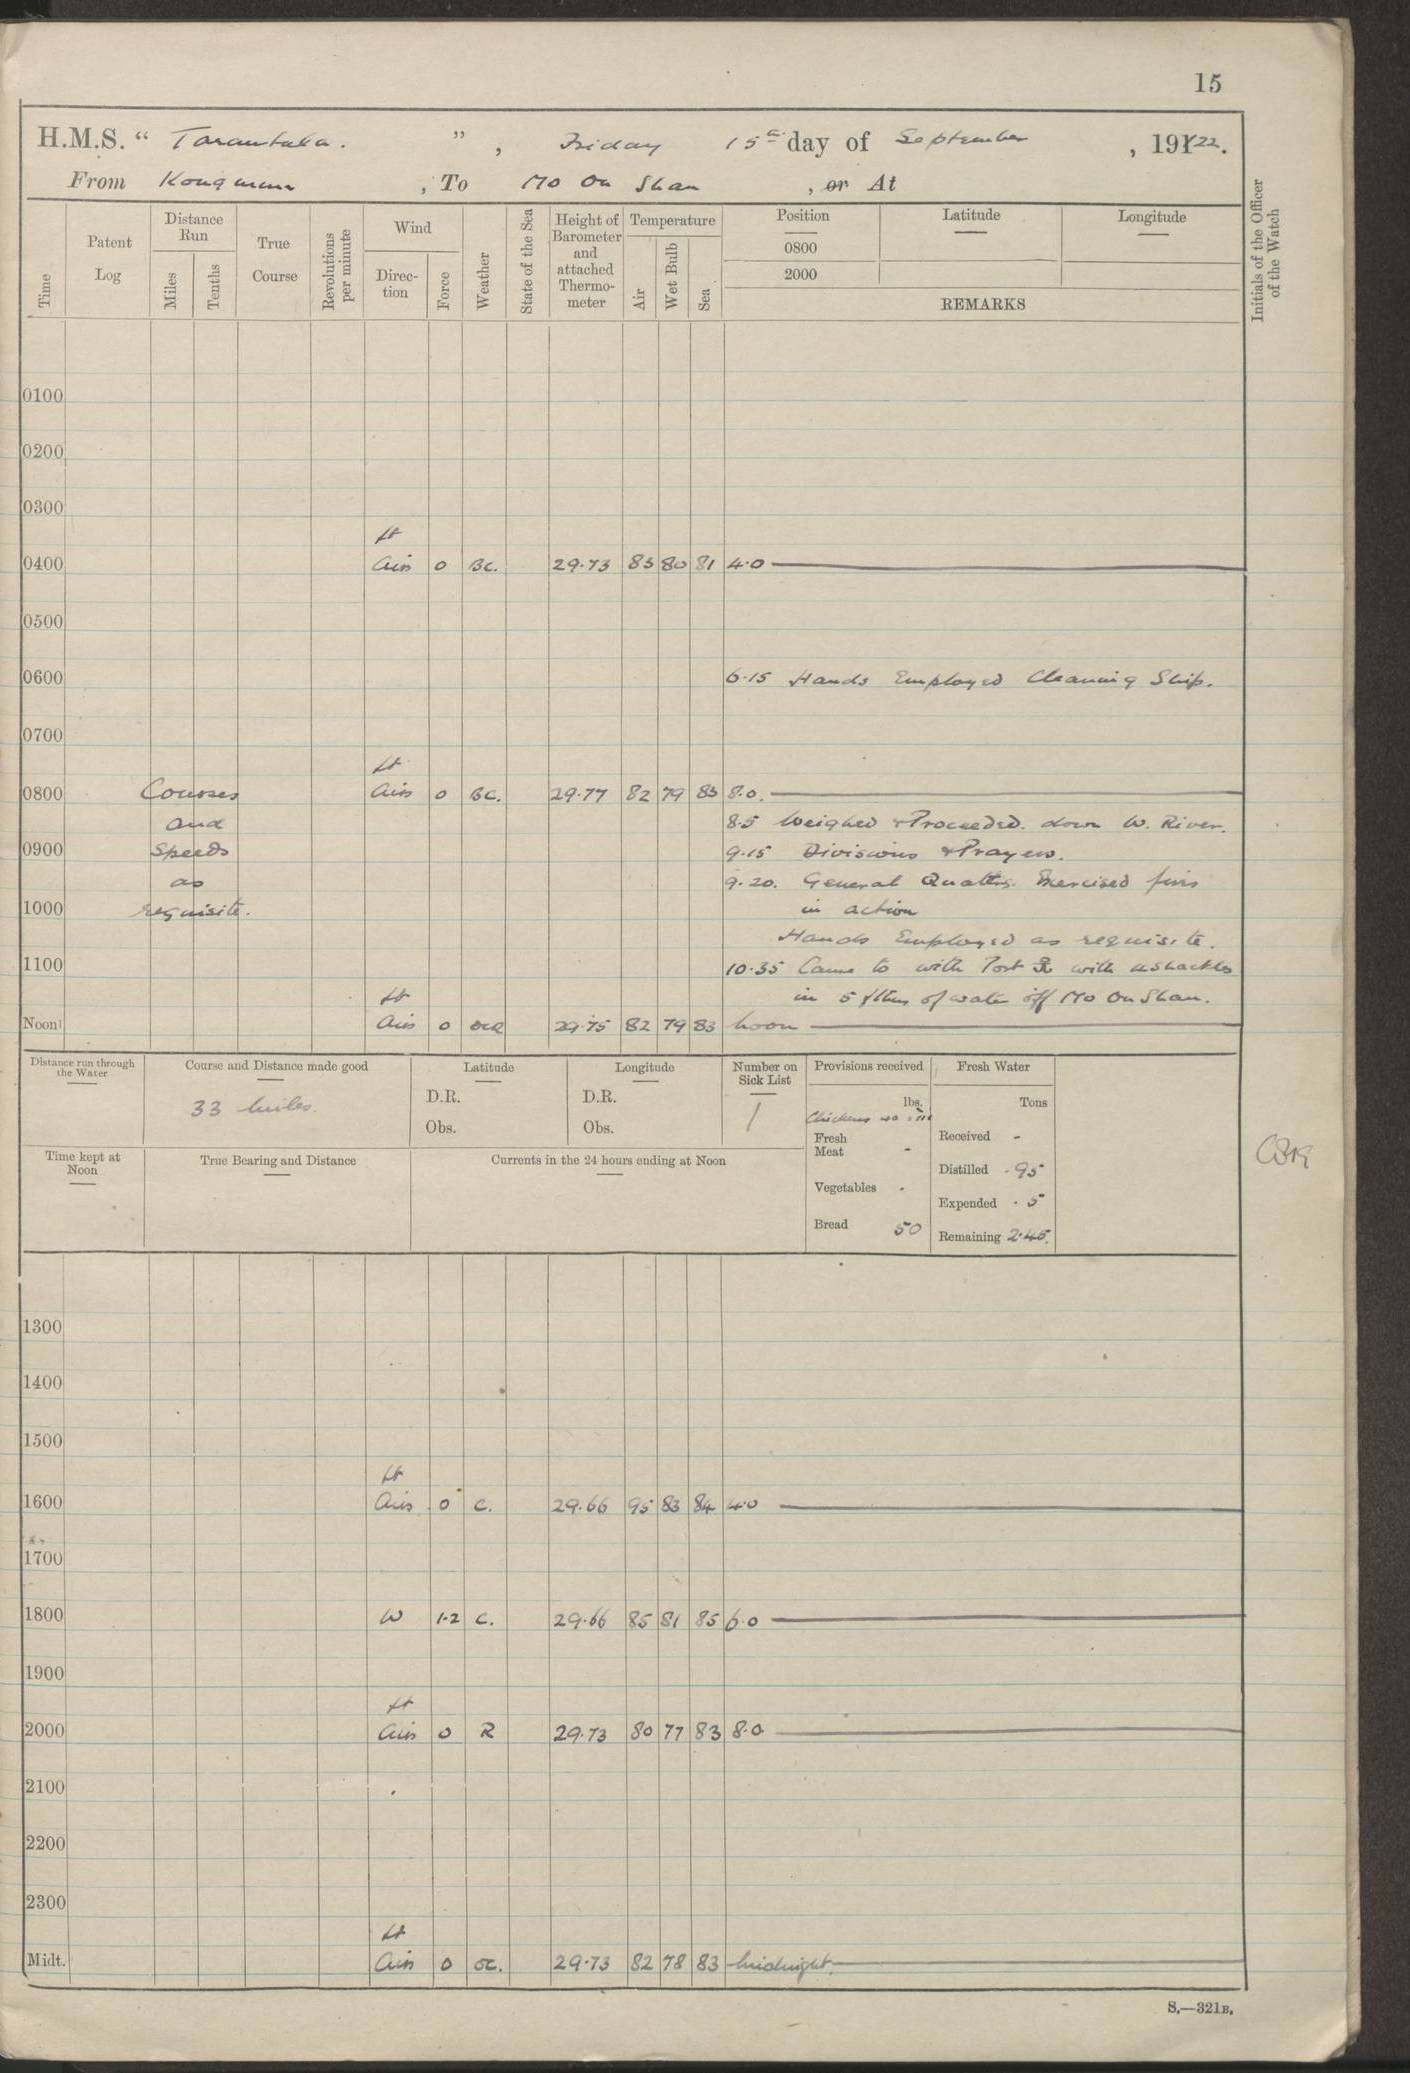 15
H.M.S. “ Tarantula. ” , Friday 15th day of September , 191922.
From Kongmun , To Mo On Shan , or At
Time
Patent Log
Distance Run
Miles
Tenths
True Course
Revolutions per minute
Wind
Direction
Force
Weather
State of the Sea
Height of Barometer and attached Thermometer
Temperature
Air
Wet Bulb
Sea
Position Latitude Longitude
0800
2000
REMARKS
Initials of the Officer of the Watch
0100
0200
0300
lt
0400 Airs 0 BC. 29.73 83 80 81 4.0
0500
0600 6.15 Hands Employed Cleaning Ship.
0700
lt
0800 Courses Airs 0 BC. 29.77 82 79 83 8.0.
and 8.5 Weighed & Proceeded. down W. River.
0900 Speeds 9.15 Divisions & Prayers.
as 9.20. General Quarters. Exercised fires
1000 requisite. in action
Hands Employed as requisite.
1100 10.35 Came to with Port ⚓ with 4 shackles
lt in 5 fthms of water off Mo On Shan.
Noon Airs 0 29.75 82 79 83 Noon
Distance run through the Water
Course and Distance made good
33 miles.
Latitude
D.R.
Obs.
Longitude
D.R.
Obs.
Number on Sick List
1
Provisions received
lbs.
Chickens no
Fresh Meat -
Vegetables -
Bread 50
Fresh Water
Tons
Received -
Distilled .95
Expended .5
Remaining 2.45.
Time kept at Noon
True Bearing and Distance
Currents in the 24 hours ending at Noon
1300
1400
1500
lt
1600 Airs 0 C. 29.66 95 83 84 4.0
1700
1800 W 1.2 C. 29.66 85 81 85 6.0
1900
lt
2000 Airs 0 R 29.73 80 77 83 8.0
2100
2200
2300
lt
Midt. Airs 0 OC. 29.73 82 78 83 Midnight.
S.—321B.